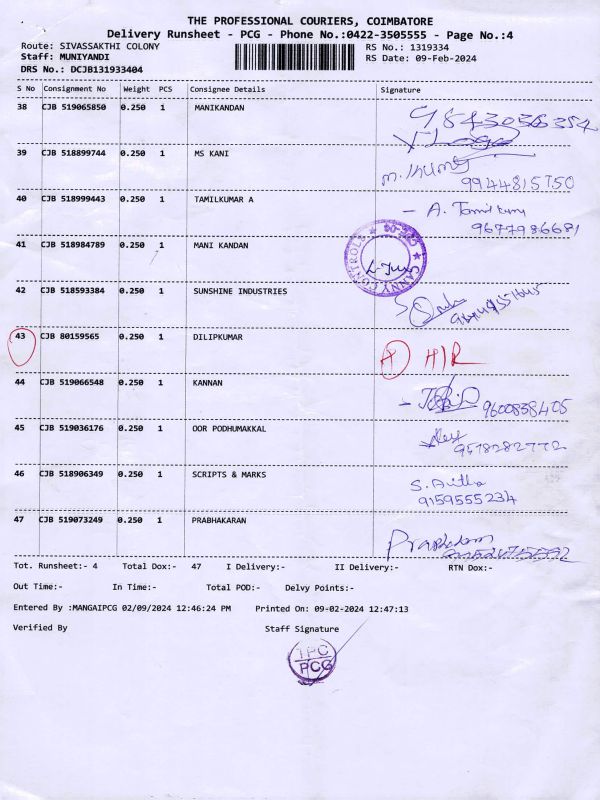 THE PROFESSIONAL COURIERS, COIMBATORE
Delivery Runsheet - PCG - Phone No.:0422-3505555 - Page No.:4
Route: SIVASSAKTHI COLONY RS No.: 1319334
Staff: MUNIYANDI RS Date: 09-Feb-2024
DRS No.: DCJB131933404
S No Consignment No Weight PCS Consignee Details Signature
38 CJB 519065850 0.250 1 MANIKANDAN
39 CJB 518899744 0.250 1 MS KANI
9944815750
40 CJB 518999443 0.250 1 TAMILKUMAR A - A. Tamil
9677986681
41 CJB 518984789 0.250 1 MANI KANDAN
42 CJB 518593384 0.250 1 SUNSHINE INDUSTRIES
43 CJB 80159565 0.250 1 DILIPKUMAR
A H/R
44 CJB 519066548 0.250 1 KANNAN
9600838405
45 CJB 519036176 0.250 1 OOR PODHUMAKKAL
9578282772
46 CJB 518906349 0.250 1 SCRIPTS & MARKS
S.
9159555234
47 CJB 519073249 0.250 1 PRABHAKARAN
Tot. Runsheet:- 4 Total Dox:- 47 I Delivery:- II Delivery:- RTN Dox:-
Out Time:- In Time:- Total POD:- Delvy Points:-
Entered By :MANGAIPCG 02/09/2024 12:46:24 PM Printed On: 09-02-2024 12:47:13
Verified By Staff Signature
TPC
PCG